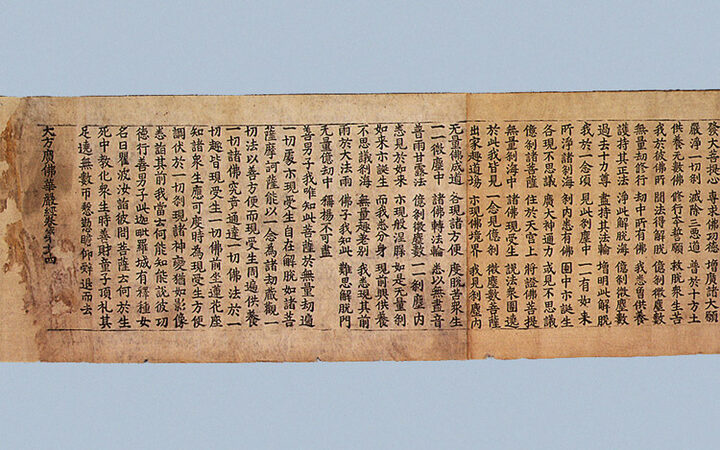 發大菩提心 專求佛功德 增廣諸大願
嚴淨一切刹 滅除三惡道 普於十方土
供養无數佛 修行 誓願 救脫衆生苦
我於彼佛所 聞法得解脫 億刹微塵數
無量劫修行 劫中所有佛 我悉曾供養
護持其正法 淨此解脫海 億刹微塵數
過去十力尊 盡持其法輪 增明此解脫
我於一念頃 見此刹塵中 一一有如來
所淨諸刹海 刹內悉有佛 園中示誕生
各現不思議 廣大神通力 或見不思議
億刹諸菩薩 住於天宮上 將證佛菩提
無量刹海中 諸佛現受生 說法衆圍遶
於此我皆見 一念見億刹 微塵數菩薩
出家趣道場 示現佛境界 我見刹塵內
无量佛成道 各現諸方便 度脫苦衆生
一一微塵中 諸佛轉法輪 悉以無盡音
普雨甘露法 億刹微塵數 一一刹塵內
悉見於如來 示現般涅槃 如是无量刹
如來示誕生 而我悉分身 現前興供養
不思議刹海 無量趣差別 我悉現其前
雨於大法雨 佛子我知此 難思解脫門
无量億劫中 稱揚不可盡
善男子我唯知此菩薩於無量劫遍
一切處示現受生自在解脫如諸菩
薩摩訶薩能以一念為諸劫藏觀一
切法以善方便而現受生周遍供養
一切諸佛究竟通達一切佛法於一
切趣皆現受生一切佛前坐蓮花座
知諸衆生應可度時為現受生方便
調伏於一切刹現諸神變猶如影像
悉詣其前我當云何能知能說彼功
德行善男子此迦毗羅城有釋種女
名曰瞿波汝詣彼問菩薩云何於生
死中教化衆生時善財童子頂礼其
足遶無數帀慇懃瞻仰辭退而去
大方廣佛華嚴經卷第七十四